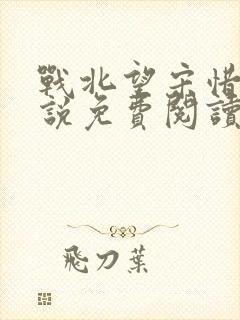 戰北望宋惜
說免費閱讀
飛刀葉